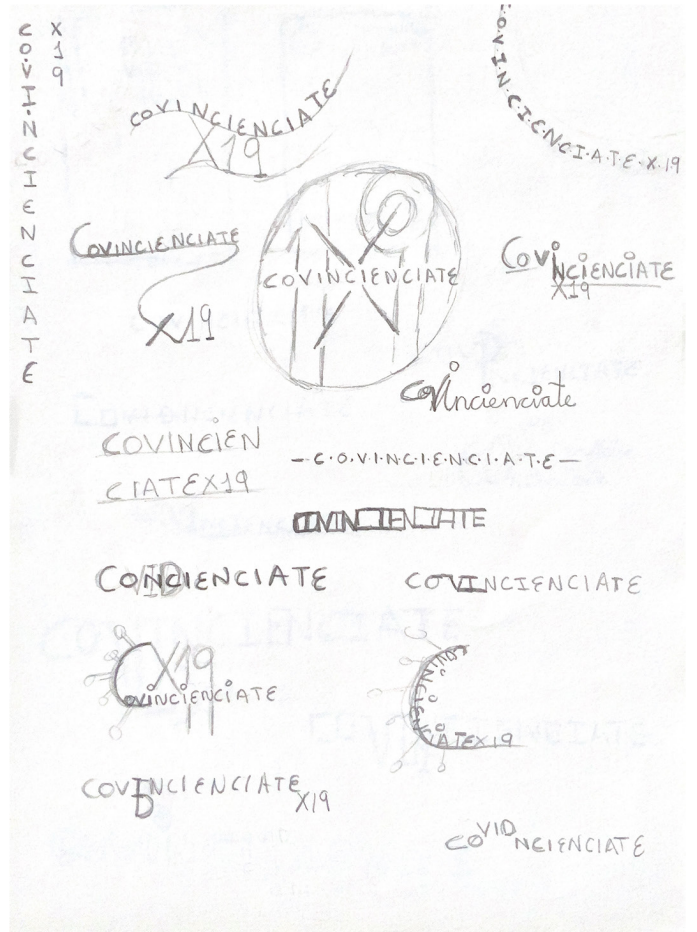 COVINCIENCIATE
X19
COVINCIENCIATE
X19
C·O·V·I·N·C·I·E·N·C·I·A·T·E·X·19
COVINCIENCIATE
X19
COVINCIENCIATE
COVINCIENCIATE
X19
Covincienciate
COVINCIEN
CIATEX19
-C·O·V·I·N·C·I·E·N·C·I·A·T·E-
CONCIENCIATE
VID
COVINCIENCIATE
X19
COVINCIENCIATE
COVINCIENCIATEX19
COVINCIENCIATE
D
X19
COVIDNCIENCIATE